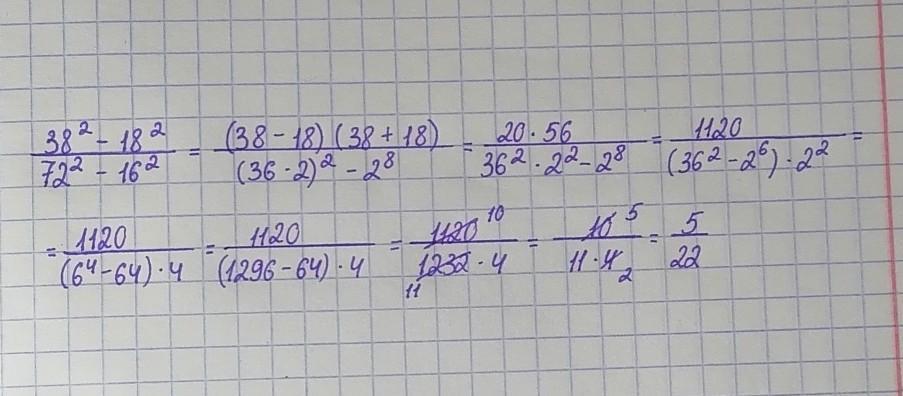 (38² - 18²)/(72² - 16²) = ((38 - 18)(38 + 18))/((36 · 2)² - 2⁸) = (20 · 56)/(36² · 2² - 2⁸) = 1120/((36² - 2⁶) · 2²) =
= 1120/((6⁴ - 64) · 4) = 1120/((1296 - 64) · 4) = 1120 10/(1232 11 · 4) = 10 5/(11 · 4 2) = 5/22